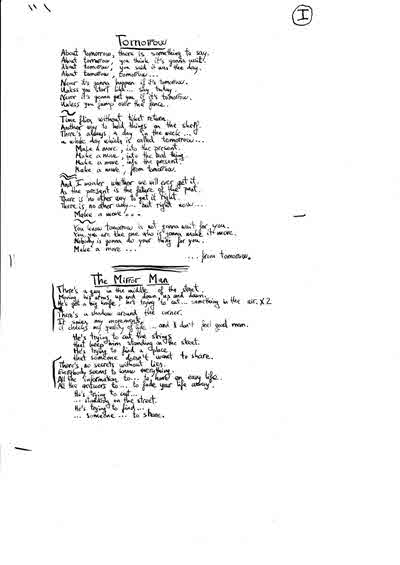 I
Tomorrow
About tomorrow, there is something to say.
About tomorrow, you think it's gonna wait.
About tomorrow, you said it was the day.
About tomorrow, tomorrow...
Never it's gonna happen if it's tomorrow.
Unless you start but... say, today.
Never it's gonna get you if it's tomorrow.
Unless you jump over the fence.
Time flies without ticket return.
Another way to hold things on the shelf.
There's always a day in the week...
a whole day which is called tomorrow...
Make a move, into the present.
Make a move, into the real thing.
Make a move into the present.
Make a move, from tomorrow.
And I wonder whether we will ever get it.
As the present is the future of the past.
There is no other way to get it right.
There is no other way... but right now...
Make a move...
You know tomorrow is not gonna wait for you.
You are the one who is gonna make it move.
Nobody is gonna do your thing for you.
Make a move...
... from tomorrow.
The Mirror Man
There's a guy in the middle of the street.
Moving his arms, up and down, up and down.
He's got a big knife, he's trying to cut... something in the air. x2
There's a shadow around the corner.
It my movements.
It checks my quality of life... and I don't feel good man.
He's trying to cut the strings
that keep him standing on the street.
He's trying to find a place
that someone doesn't want to share.
There's no secrets without lies.
Everybody seems to know everything.
All the information to... to have an easy life.
All the answers to... to fade your life away.
He's trying to cut...
... standing on the street.
He's trying to find...
... someone... to share.